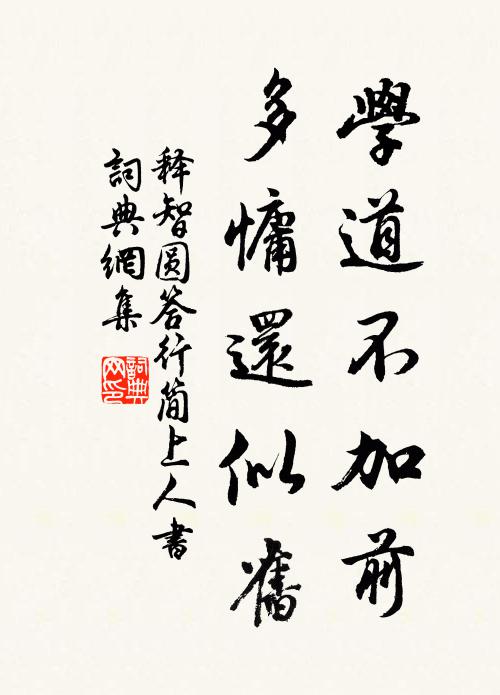 學道不加前
多慵還似舊
释智圆答行简上人書
詞典網集
詞典網印